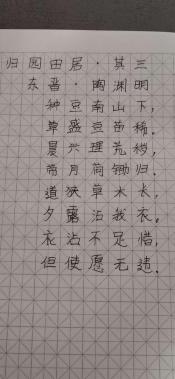 归园田居·其三
东晋·陶渊明
种豆南山下,
草盛豆苗稀,
晨兴理荒秽,
带月荷锄归.
道狭草木长,
夕露沾我衣.
衣沾不足惜,
但使愿无违.